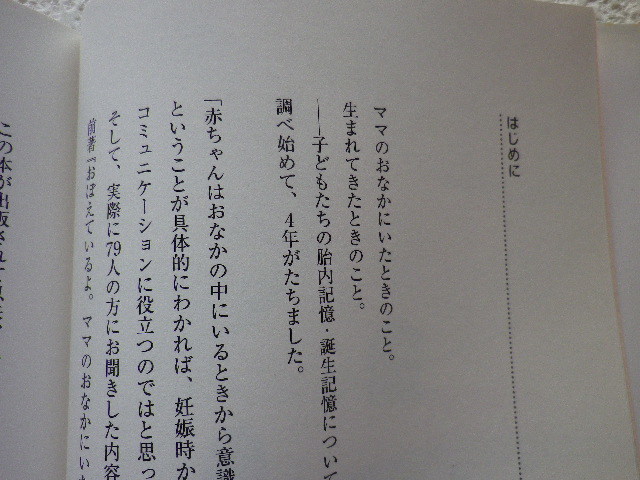 はじめに
ママのおなかにいたときのこと。
生まれてきたときのこと。
――子どもたちの胎内記憶・誕生記憶について
調べ始めて、4年がたちました。
「赤ちゃんはおなかの中にいるときから意識
ということが具体的にわかれば、妊娠時か
コミュニケーションに役立つのではと思っ
そして、実際に79人の方にお聞きした内容
前著『おぼえているよ。ママのおなかにい
この本が出版されて